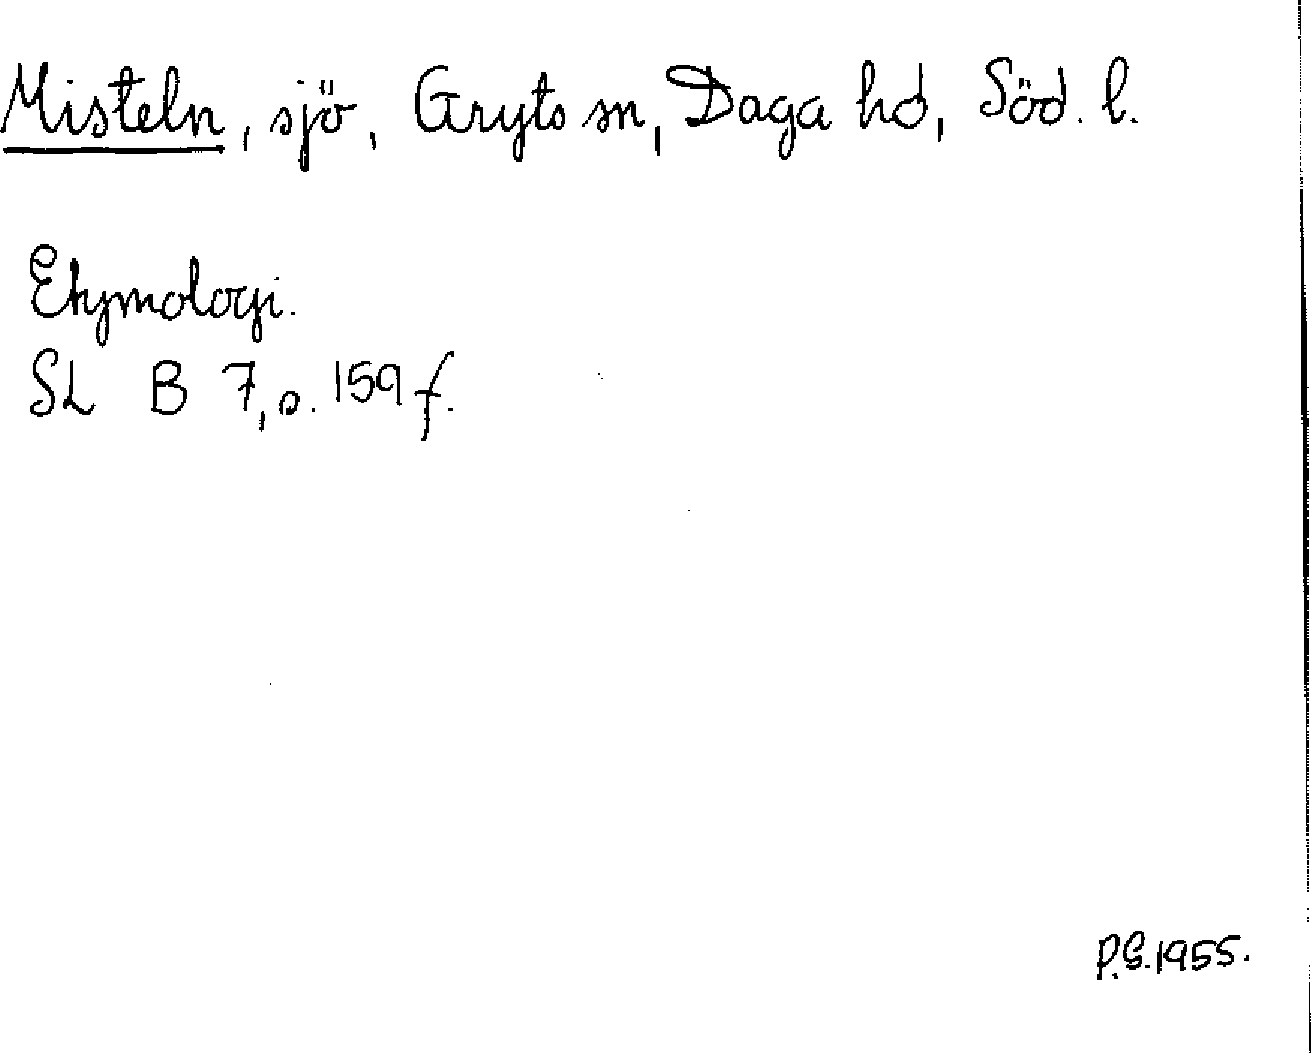 Misteln, sjö, Gryts sn, Daga hd, Söd. l.
Etymologi.
SL B 7, s. 159 f.
P.G. 1955.